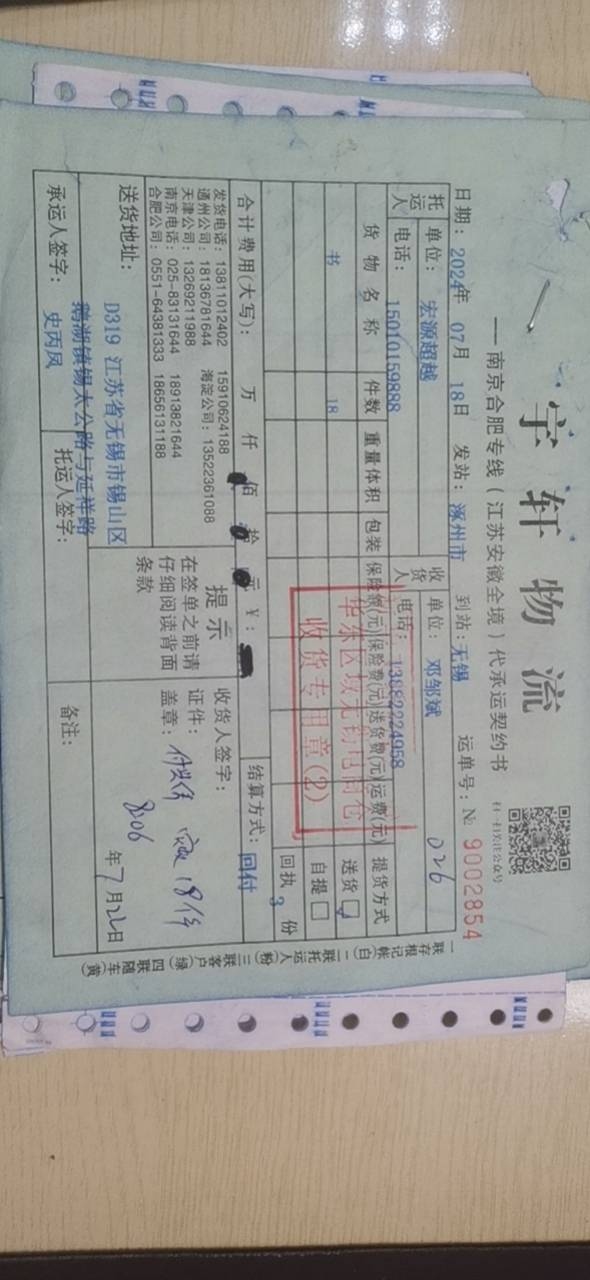 宇轩物流
扫一扫关注公众号
——南京合肥专线(江苏安徽全境)代承运契约书
日期：2024年 07月 18日 发站：涿州市 到站：无锡 运单号：№ 9002854
托运人 单位：宏源超越 收货人 单位：邓邹斌 026
电话：15010159888 电话：13882224958
货物名称 件数 重量体积 包装 保险额(元) 保险费(元) 送货费(元) 运费(元) 提货方式
书 18 送货☑
自提□
回执 3 份
华东区域无锡电商仓
收货专用章(2)
合计费用(大写)： 万 仟 佰 拾 元 ￥： 结算方式：回付
发货电话：13811012402 15910624188
通州公司：18136781644 海淀公司：13522361088
天津公司：13269211988
南京电话：025-83131644 18913821644
合肥公司：0551-64381333 18656131188
提示
在签单之前请
仔细阅读背面
条款
收货人签字：
证件：
盖章： 18件
8.06
年7月22日
送货地址： D319 江苏省无锡市锡山区
鹅湖镇锡太公路与延祥路
承运人签字： 史丙凤 托运人签字： 备注：
一联存根记帐(白) 二联托运人(粉) 三联客户(绿) 四联随车(黄)